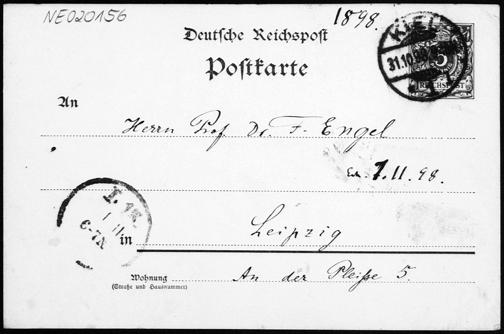 NE020156
1898.
Deutsche Reichspost
Postkarte
KIEL
31.10.98
5
REICHSPOST
An
Herrn Prof Dr. F. Engel
1.11.98.
in Leipzig
Wohnung An der Pleiße 5.
(Straße und Hausnummer)